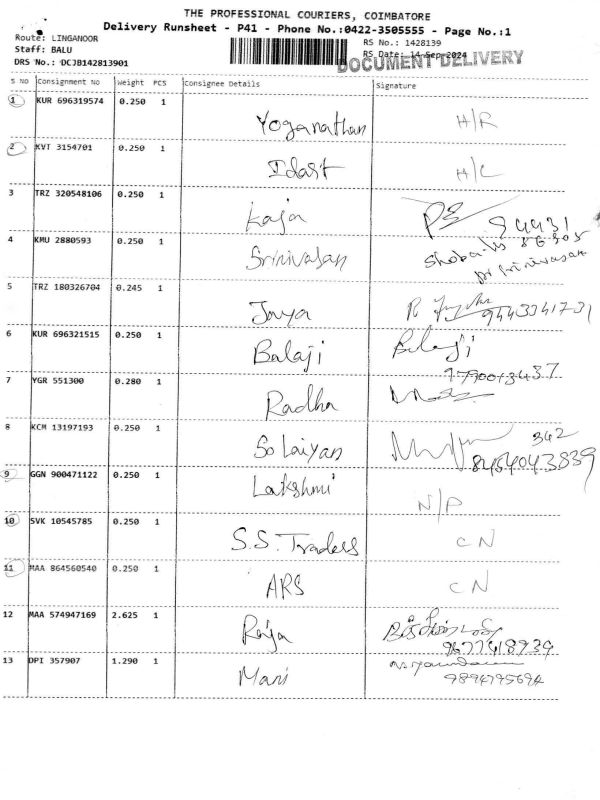 THE PROFESSIONAL COURIERS, COIMBATORE
Delivery Runsheet - P41 - Phone No.:0422-3505555 - Page No.:1
Route: LINGANOOR RS No.: 1428139
Staff: BALU RS Date: 14 Sep 2024
DRS No.: DCJB142813901 DOCUMENT DELIVERY
S No Consignment No Weight PCS Consignee Details Signature
1 KUR 696319574 0.250 1 Yoganathan H/R
2 KVT 3154701 0.250 1 Idast H/C
3 TRZ 320548106 0.250 1 Kaja 94431
4 KMU 2880593 0.250 1 Srinivasan
5 TRZ 180326704 0.245 1 Jaya
6 KUR 696321515 0.250 1 Balaji Balaji
9790013437
7 YGR 551300 0.280 1 Radha
8 KCM 13197193 0.250 1 Solaiyan 342
8454043839
9 GGN 900471122 0.250 1 Lakshmi N/P
10 SVK 10545785 0.250 1 S.S. Traders CN
11 MAA 864560540 0.250 1 ARS CN
12 MAA 574947169 2.625 1 Raja
9677418939
13 DPI 357907 1.290 1 Mani
9894795694